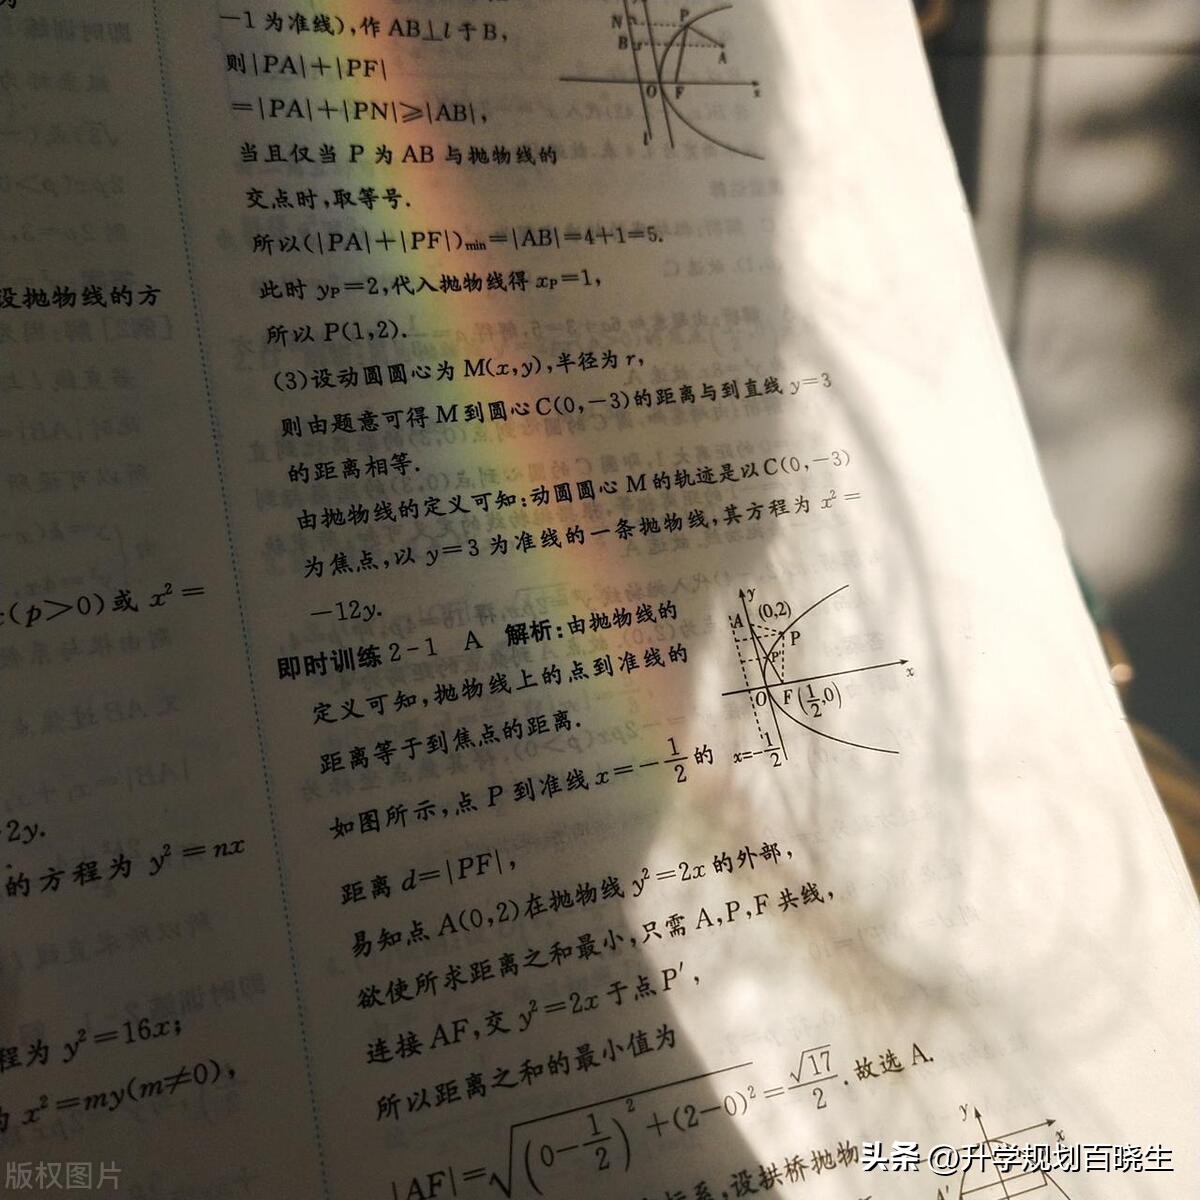 -1为准线),作AB⊥l于B,
则|PA|+|PF|
=|PA|+|PN|≥|AB|,
当且仅当P为AB与抛物线的
交点时,取等号.
所以(|PA|+|PF|)min=|AB|=4+1=5.
此时yP=2,代入抛物线得xP=1,
所以P(1,2).
(3)设动圆圆心为M(x,y),半径为r,
则由题意可得M到圆心C(0,-3)的距离与到直线y=3
的距离相等.
由抛物线的定义可知:动圆圆心M的轨迹是以C(0,-3)
为焦点,以y=3为准线的一条抛物线,其方程为x²=
-12y.
即时训练2-1 A 解析:由抛物线的
定义可知,抛物线上的点到准线的
距离等于到焦点的距离.
如图所示,点P到准线x=-1/2的
距离d=|PF|,
易知点A(0,2)在抛物线y²=2x的外部,
欲使所求距离之和最小,只需A,P,F共线,
连接AF,交y²=2x于点P′,
所以距离之和的最小值为
|AF|=√((0-1/2)²+(2-0)²)=√17/2.故选A.
系,设拱桥抛物
N P
B A
O F x
l
y
A (0,2)
P
P′
O F(1/2,0) x
x=-1/2
y
x
A′
设抛物线的方
(p>0)或x²=
2y.
的方程为y²=nx
程为y²=16x;
为x²=my(m≠0),
版权图片
头条 @升学规划百晓生